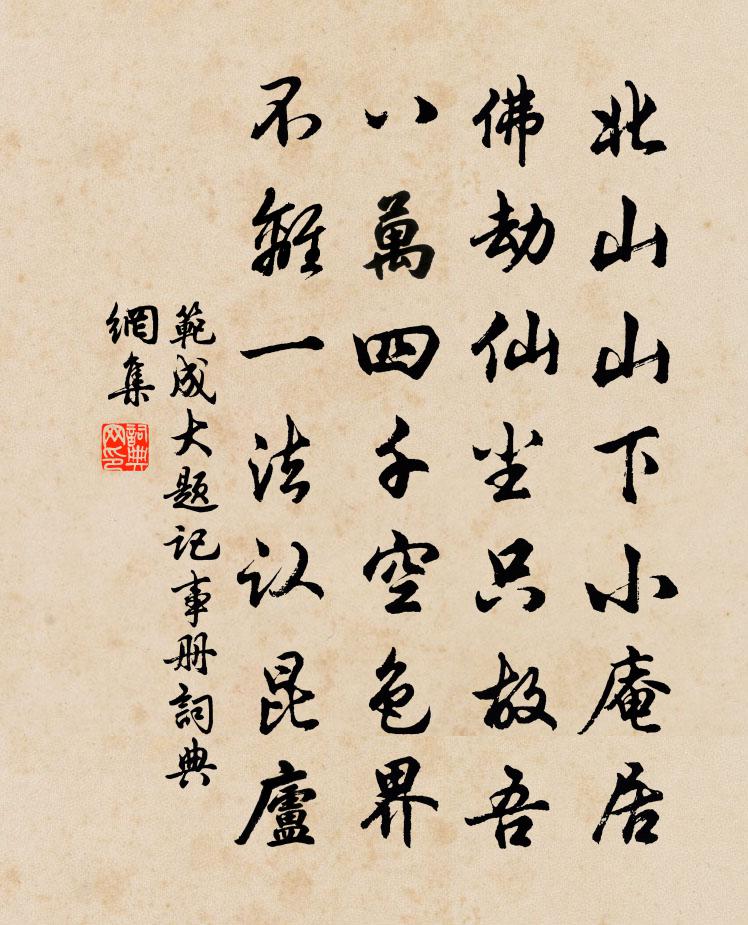 北山山下小庵居
佛劫仙尘只故吾
八萬四千空色界
不離一法认昆廬
範成大题记事册詞典
網集
詞典
网印